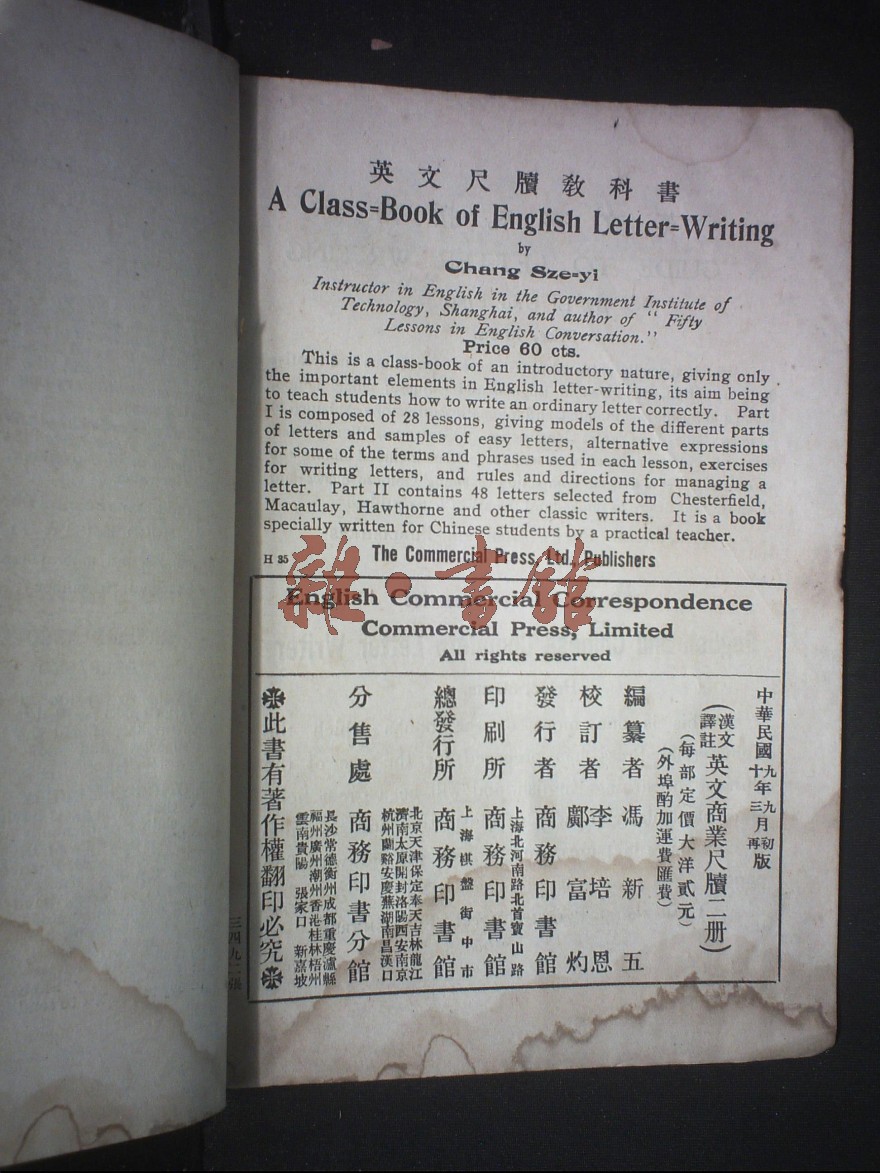 英文尺牘教科書
A Class=Book of English Letter=Writing
by
Chang Sze=yi
Instructor in English in the Government Institute of
Technology, Shanghai, and author of "Fifty
Lessons in English Conversation."
Price 60 cts.
This is a class-book of an introductory nature, giving only
the important elements in English letter-writing, its aim being
to teach students how to write an ordinary letter correctly. Part
I is composed of 28 lessons, giving models of the different parts
of letters and samples of easy letters, alternative expressions
for some of the terms and phrases used in each lesson, exercises
for writing letters, and rules and directions for managing a
letter. Part II contains 48 letters selected from Chesterfield,
Macaulay, Hawthorne and other classic writers. It is a book
specially written for Chinese students by a practical teacher.
H 35
The Commercial Press, Ltd., Publishers
雜·書館
English Commercial Correspondence
Commercial Press, Limited
All rights reserved
中華民國九年九月初版
十三再
漢文譯註
(英文商業尺牘二册)
(每部定價大洋貳元)
(外埠酌加運費匯費)
編纂者 馮新五
校訂者 李培恩
鄺富灼
發行者 商務印書館
上海北河南路北首寶山路
印刷所 商務印書館
上海棋盤街中市
總發行所 商務印書館
北京天津保定奉天吉林龍江
濟南太原開封洛陽西安南京
杭州蘭谿安慶蕪湖南昌漢口
分售處 商務印書分館
長沙常德衡州成都重慶瀘縣
福州廣州潮州香港桂林梧州
雲南貴陽 張家口 新嘉坡
此書有著作權翻印必究